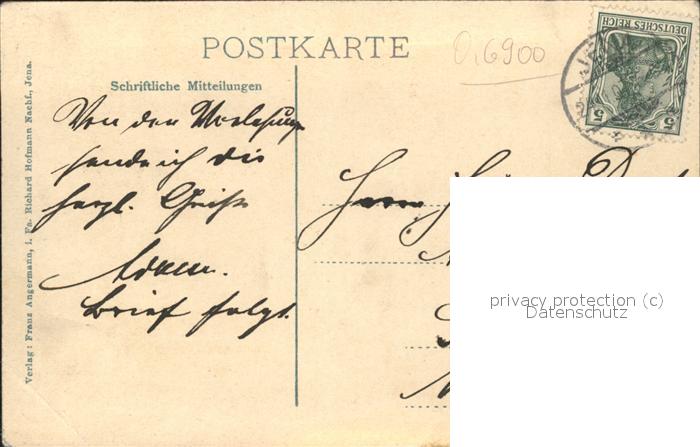 POSTKARTE
0,6900
DEUTSCHES REICH
5 5
Schriftliche Mitteilungen
Von den Vorlesung
sende ich die
herzl. Grüße
Brief folgt.
Herrn
privacy protection (c)
Datenschutz
Verlag: Franz Angermann, i. Fa. Richard Hofmann Nachf., Jena.